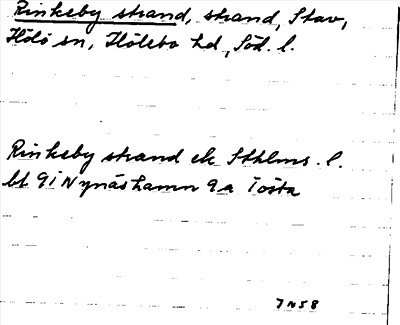 Rinkeby strand, strand, Stav,
Hölö sn, Hölebo hd, Söd. l.
Rinkeby strand ek Sthlms. l.
bl 9i Nynäshamn 9a Tösta
7 N 58